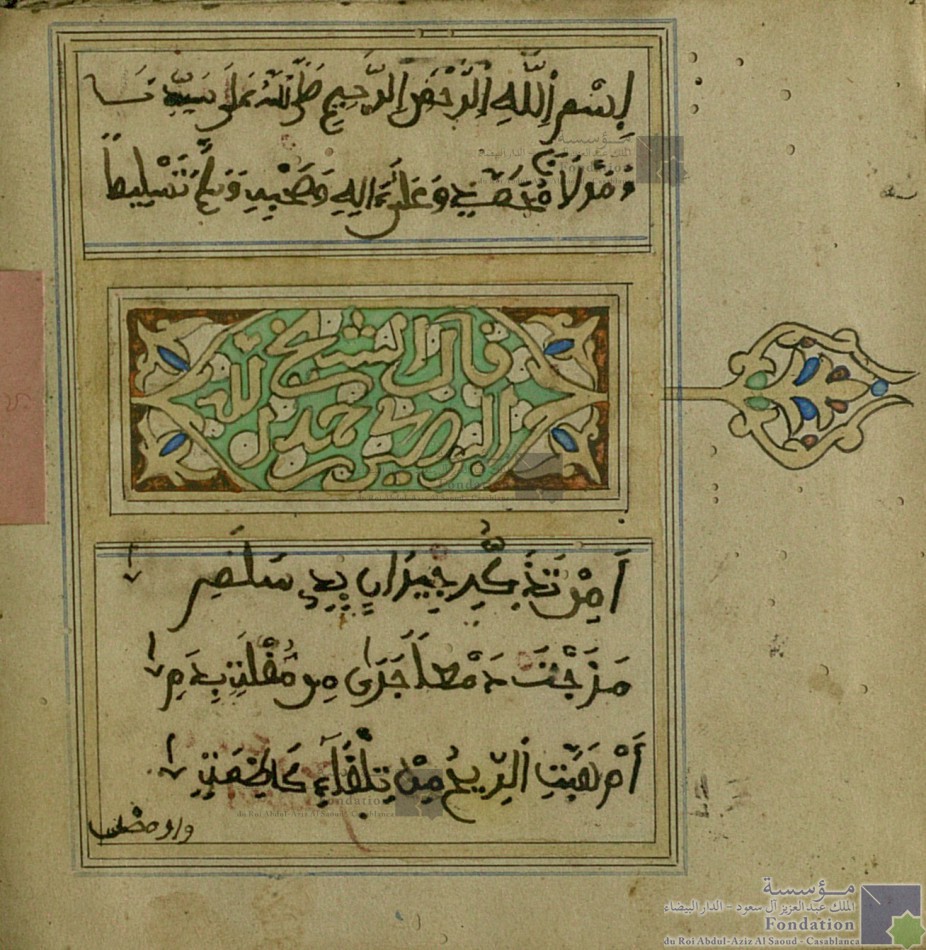 بِسْمِ اِللَّهِ اِلرَّحْمَٰنِ اِلرَّحِيمِ صَلَّى اللَّهُ عَلَى سَيِّدِنَا
وَمَوْلَانَا مُحَمَّدٍ وَعَلَى ءَالِهِ وَصَحْبِهِ وَسَلَّمَ تَسْلِيماً
قال الشيخ
البوصيري
أَمِنْ تَذَكُّرِ جِيرَانٍ بِذِي سَلَمِ
مَزَجْتَ دَمْعاً جَرَى مِن مُقْلَةٍ بِدَمِ
أَمْ هَبَّتِ اِلرِّيحُ مِنْ تِلْقَاءِ كَاظِمَةٍ
واومض
مؤسسة
الملك عبد العزيز آل سعود - الدار البيضاء
Fondation
du Roi Abdul-Aziz Al Saoud - Casablanca